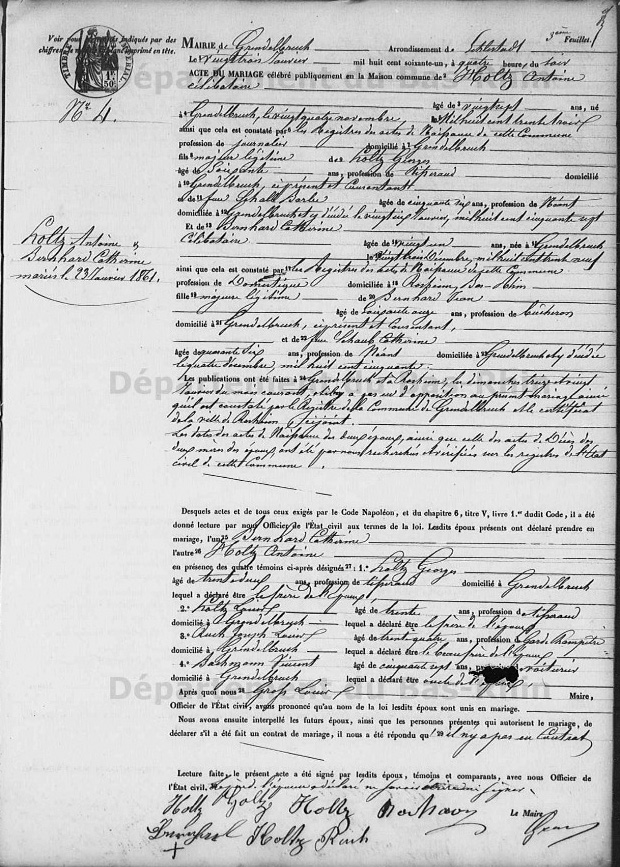 Voir pour les mots indiqués par des
chiffres le modèle imprimé en tête.
TIMBRE IMPÉRIAL
1F 50c
3ème Feuillet.
MAIRIE de Grendelbruch Arrondissement de Schlestadt
Le vingt trois Janvier mil huit cent soixante-un, à quatre heures du soir
ACTE DU MARIAGE célébré publiquement en la Maison commune de 1 Holtz Antoine
célibataire
âgé de 2 vingt sept ans, né
à 3 Grendelbruch, le vingt quatre novembre mil huit cent trente trois
ainsi que cela est constaté par 5 les Registres des actes de Naissance de cette Commune
profession de journalier domicilié à Grendelbruch
fils 7 majeur légitime de 8 Holtz Georges
âgé de Soixante ans, profession de Tisserand domicilié
à 10 Grendelbruch, ci présent et Consentant
et de 11 feue Schall Barbe âgée de cinquante six ans, profession de Néant
domiciliée à 12 Grendelbruch et y décédée le vingt six Janvier, mil huit cent cinquante sept
Et de 13 Bernhard Catherine
Célibataire âgée de vingt un ans, née à Grendelbruch
le vingt trois Décembre, mil huit cent trente neuf
ainsi que cela est constaté par 17 les Registres des actes de Naissance de cette Commune
profession de Domestique domiciliée à 18 Rosheim, Bas-Rhin
fille 19 majeure légitime de 20 Bernhard Jean
âgé de Soixante onze ans, profession de Bûcheron
domicilié à 21 Grendelbruch, ci présent et Consentant,
et de 22 feue Schaub Catherine
âgée de quarante six ans, profession de Néant domiciliée à 23 Grendelbruch et y décédée
le quatre décembre, mil huit cent cinquante
Les publications ont été faites à 24 Grendelbruch et à Rosheim, les dimanches treize et vingt
Janvier du mois courant, et il n'y a pas eu d'opposition au présent mariage ainsi
qu'il est constaté par le Registre de la Commune de Grendelbruch et le certificat
de la ville de Rosheim ci joint.
Les dates des actes de Naissance des deux époux, ainsi que celle des actes de Décès des
deux mères des époux, ont été par nous recherchées et vérifiées sur les registres de l'Etat
civil de cette Commune.
Nr. 4.
Holtz Antoine &
Bernhard Catherine
mariés le 23 Janvier 1861.
Desquels actes et de tous ceux exigés par le Code Napoléon, et du chapitre 6, titre V, livre 1.er dudit Code, il a été
donné lecture par nous Officier de l'État civil aux termes de la loi. Lesdits époux présents ont déclaré prendre en
mariage, l'un 25 Bernhard Catherine
l'autre 26 Holtz Antoine
en présence des quatre témoins ci-après désignés 27 : 1.° Holtz Georges
âgé de trente deux ans, profession de tisserand domicilié à Grendelbruch
lequel a déclaré être le frère de l'Epoux
2.° Holtz Louis âgé de trente ans, profession de tisserand
domicilié à Grendelbruch lequel a déclaré être le frère de l'époux
3.° Ruch Joseph Louis âgé de trente quatre ans, profession de Garde Champêtre
domicilié à Grendelbruch lequel a déclaré être le beau frère de l'époux
4.° Bachmann Vincent âgé de cinquante sept ans, profession de voiturier
domicilié à Grendelbruch lequel a déclaré être oncle de l'époux
Après quoi nous 28 Gross Louis Maire,
Officier de l'État civil, avons prononcé qu'au nom de la loi lesdits époux sont unis en mariage.
Nous avons ensuite interpellé les futurs époux, ainsi que les personnes présentes qui autorisent le mariage, de
déclarer s'il a été fait un contrat de mariage, il nous a été répondu qu'29 il n'y a pas eu Contrat
Lecture faite, le présent acte a été signé par lesdits époux, témoins et comparants, avec nous Officier de
l'État civil. déclaré ne savoir signer.
Holtz Holtz Holtz Le Maire
Holtz Ruch Gross
Département du Bas-Rhin
Département du Bas-Rhin
Département du Bas-Rhin